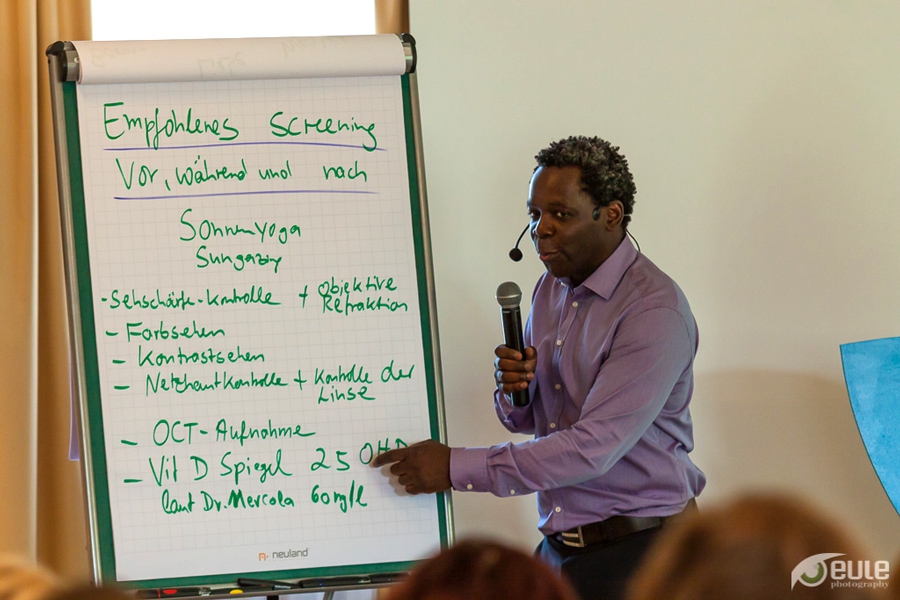 Empfohlenes Screening
Vor, während und nach
Sonnenyoga
Sungazing
- Sehschärfe-Kontrolle + Objektive Refraktion
- Farbsehen
- Kontrastsehen
- Netzhautkontrolle + Kontrolle der Linse
- OCT-Aufnahme
- Vit D Spiegel 25 OHD
laut Dr. Mercola 60 ng/l
neuland
EULE
photography